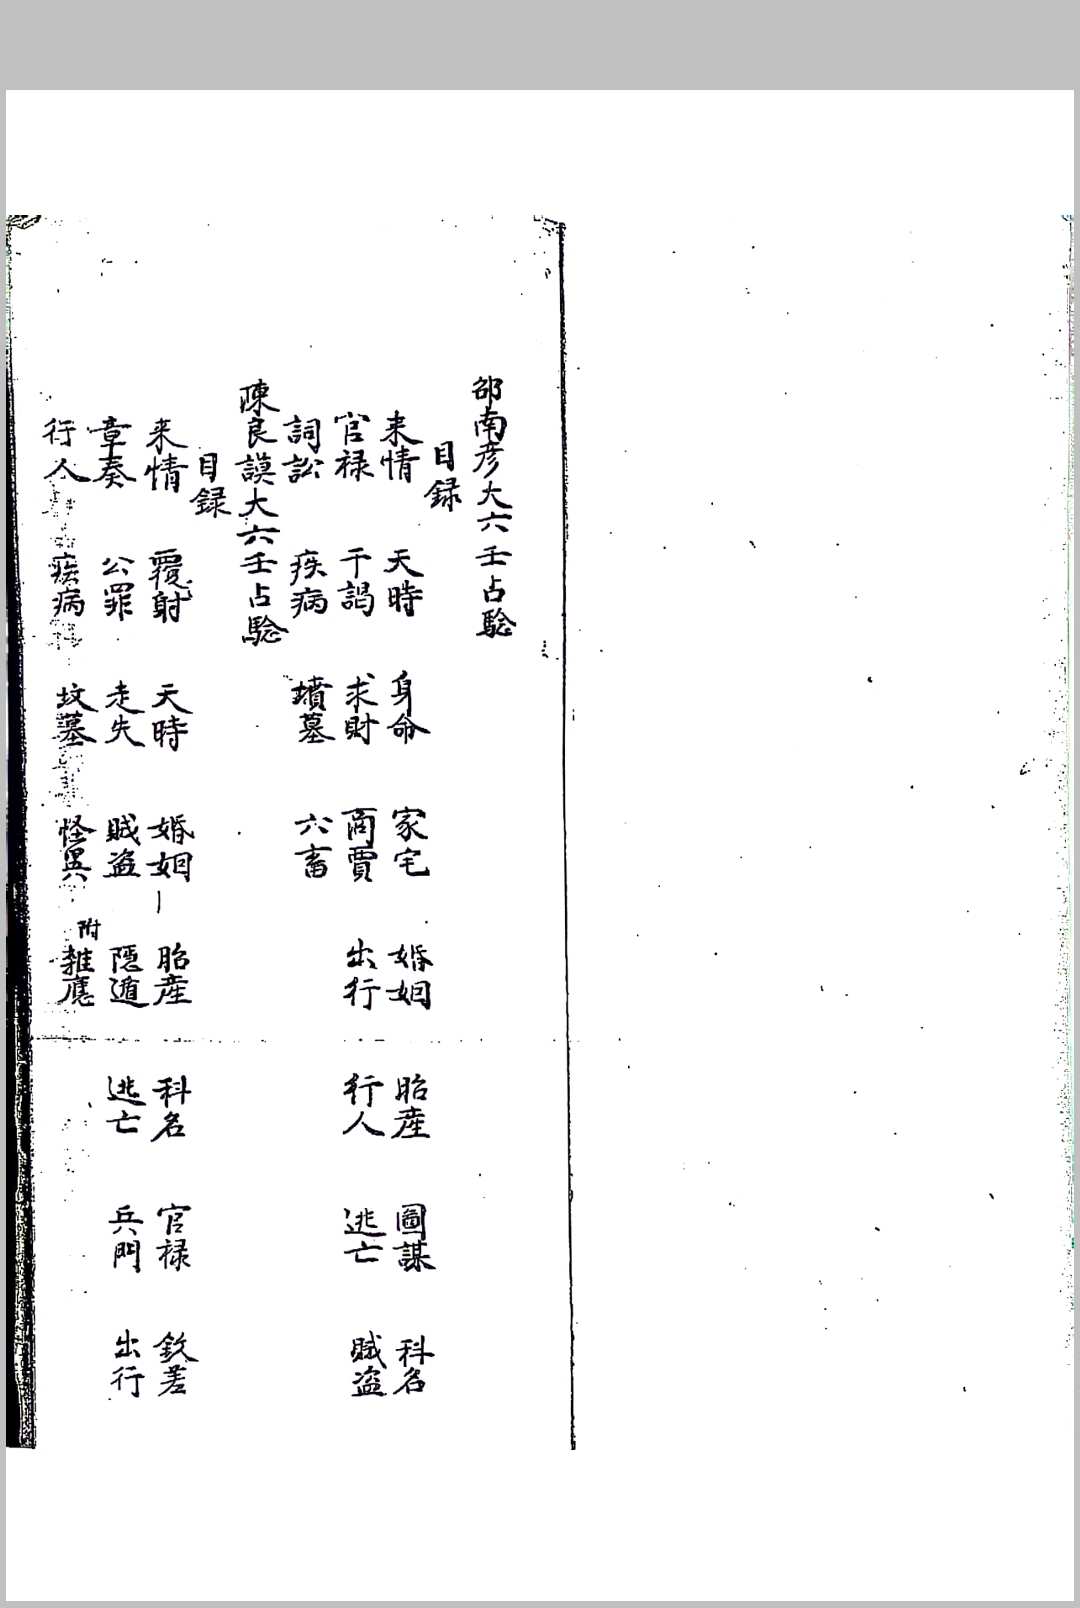 邵南彦大六壬占驗
目録
来情 天時 身命 家宅 婚姻 胎産 圖謀 科名
官禄 干謁 求財 商賈 出行 行人 逃亡 賊盗
詞訟 疾病 墳墓 六畜
陳良謨大六壬占驗
目録
来情 覆射 天時 婚姻 胎産 科名 官禄 欽差
章奏 公罪 走失 賊盗 隠遁 逃亡 兵鬥 出行
行人 疾病 坟墓 怪異 附雜應